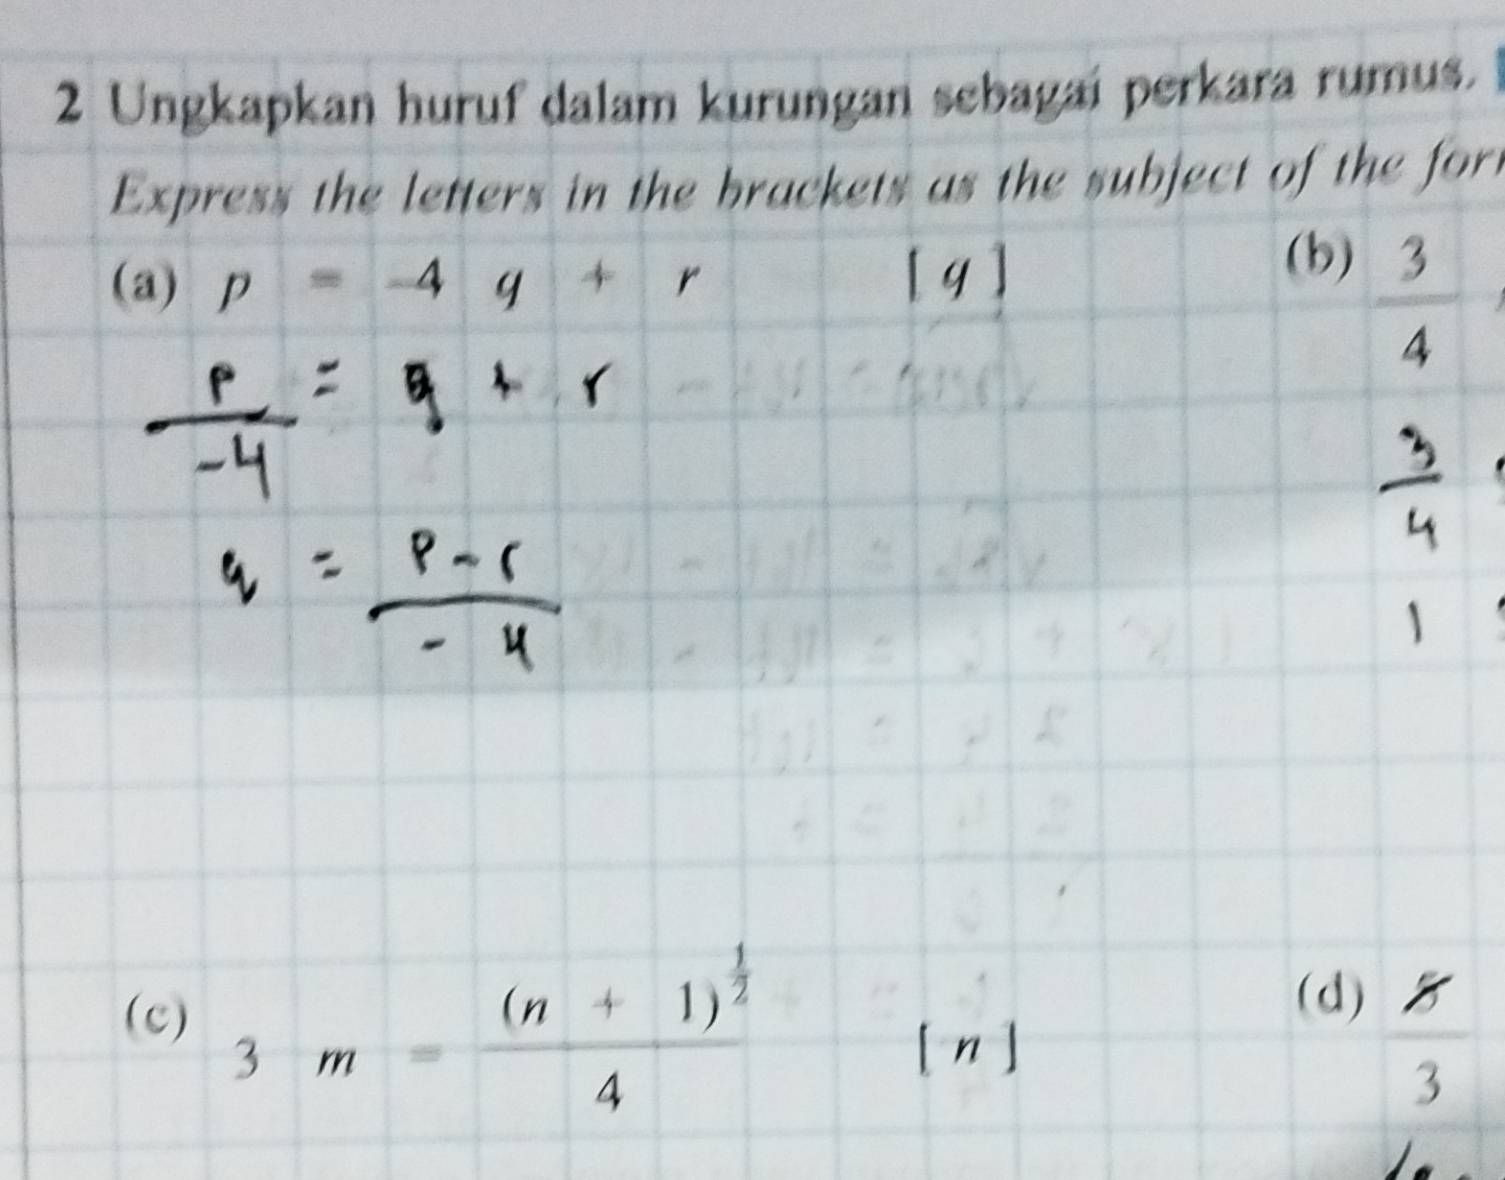 2 Ungkapkan huruf dalam kurungan sebagai perkara rumus.
Express the letters in the brackets as the subject of the for
(a) p = -4 q + r [q]
(b) 3/4
p/-4 = q + r
3/4
q = p-r/-4
1
(c) 3 m = (n + 1)^1/2 / 4 [n]
(d) 8/3